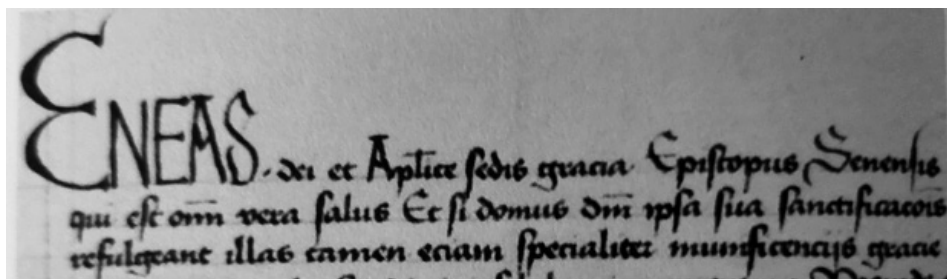 ENEAS. dei et Aplice sedis gracia Episcopus Senensis
qui est omn vera salus Et si domus dm ipsa sua sanctificacois
refulgeant illas tamen eciam specialiter munificencijs gracie